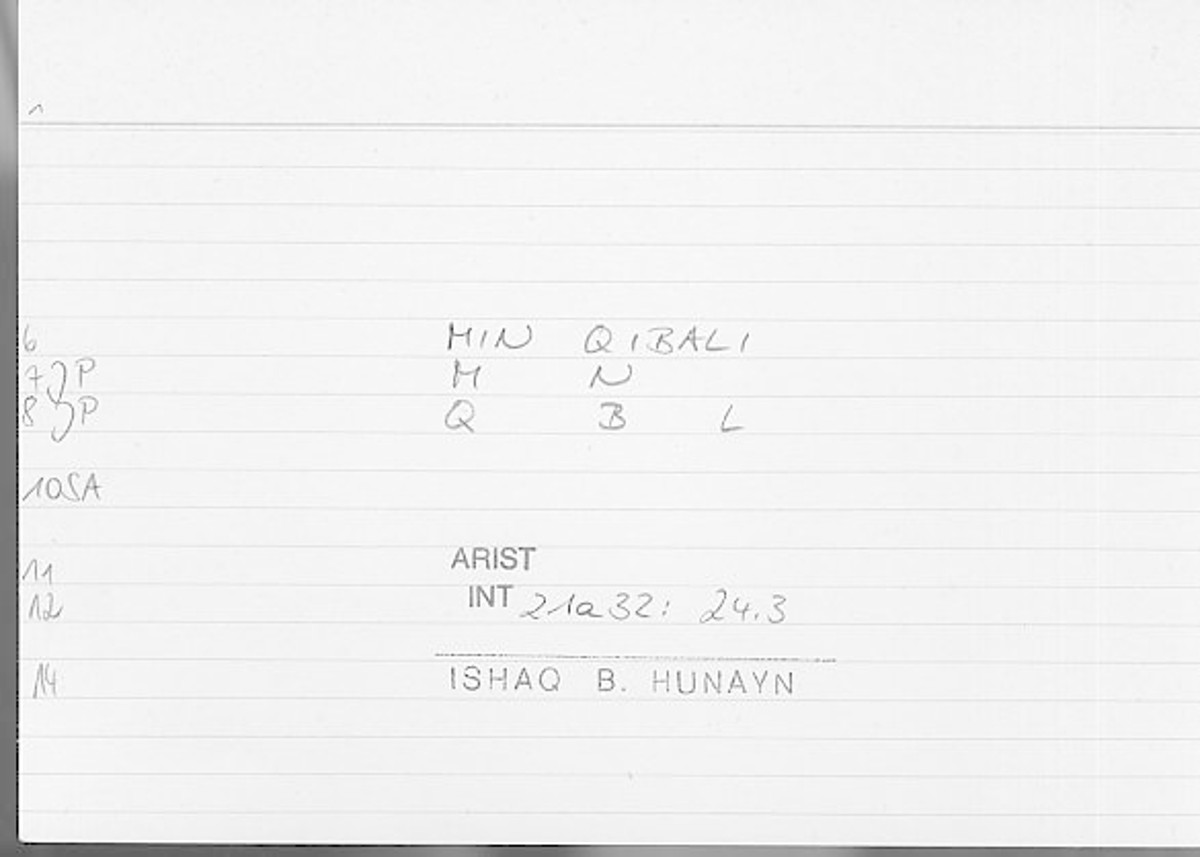 1
6 MIN QIBALI
7 JP M N
8 JP Q B L
10 SA
11 ARIST
12 INT 21a32: 24.3
14 ISHAQ B. HUNAYN